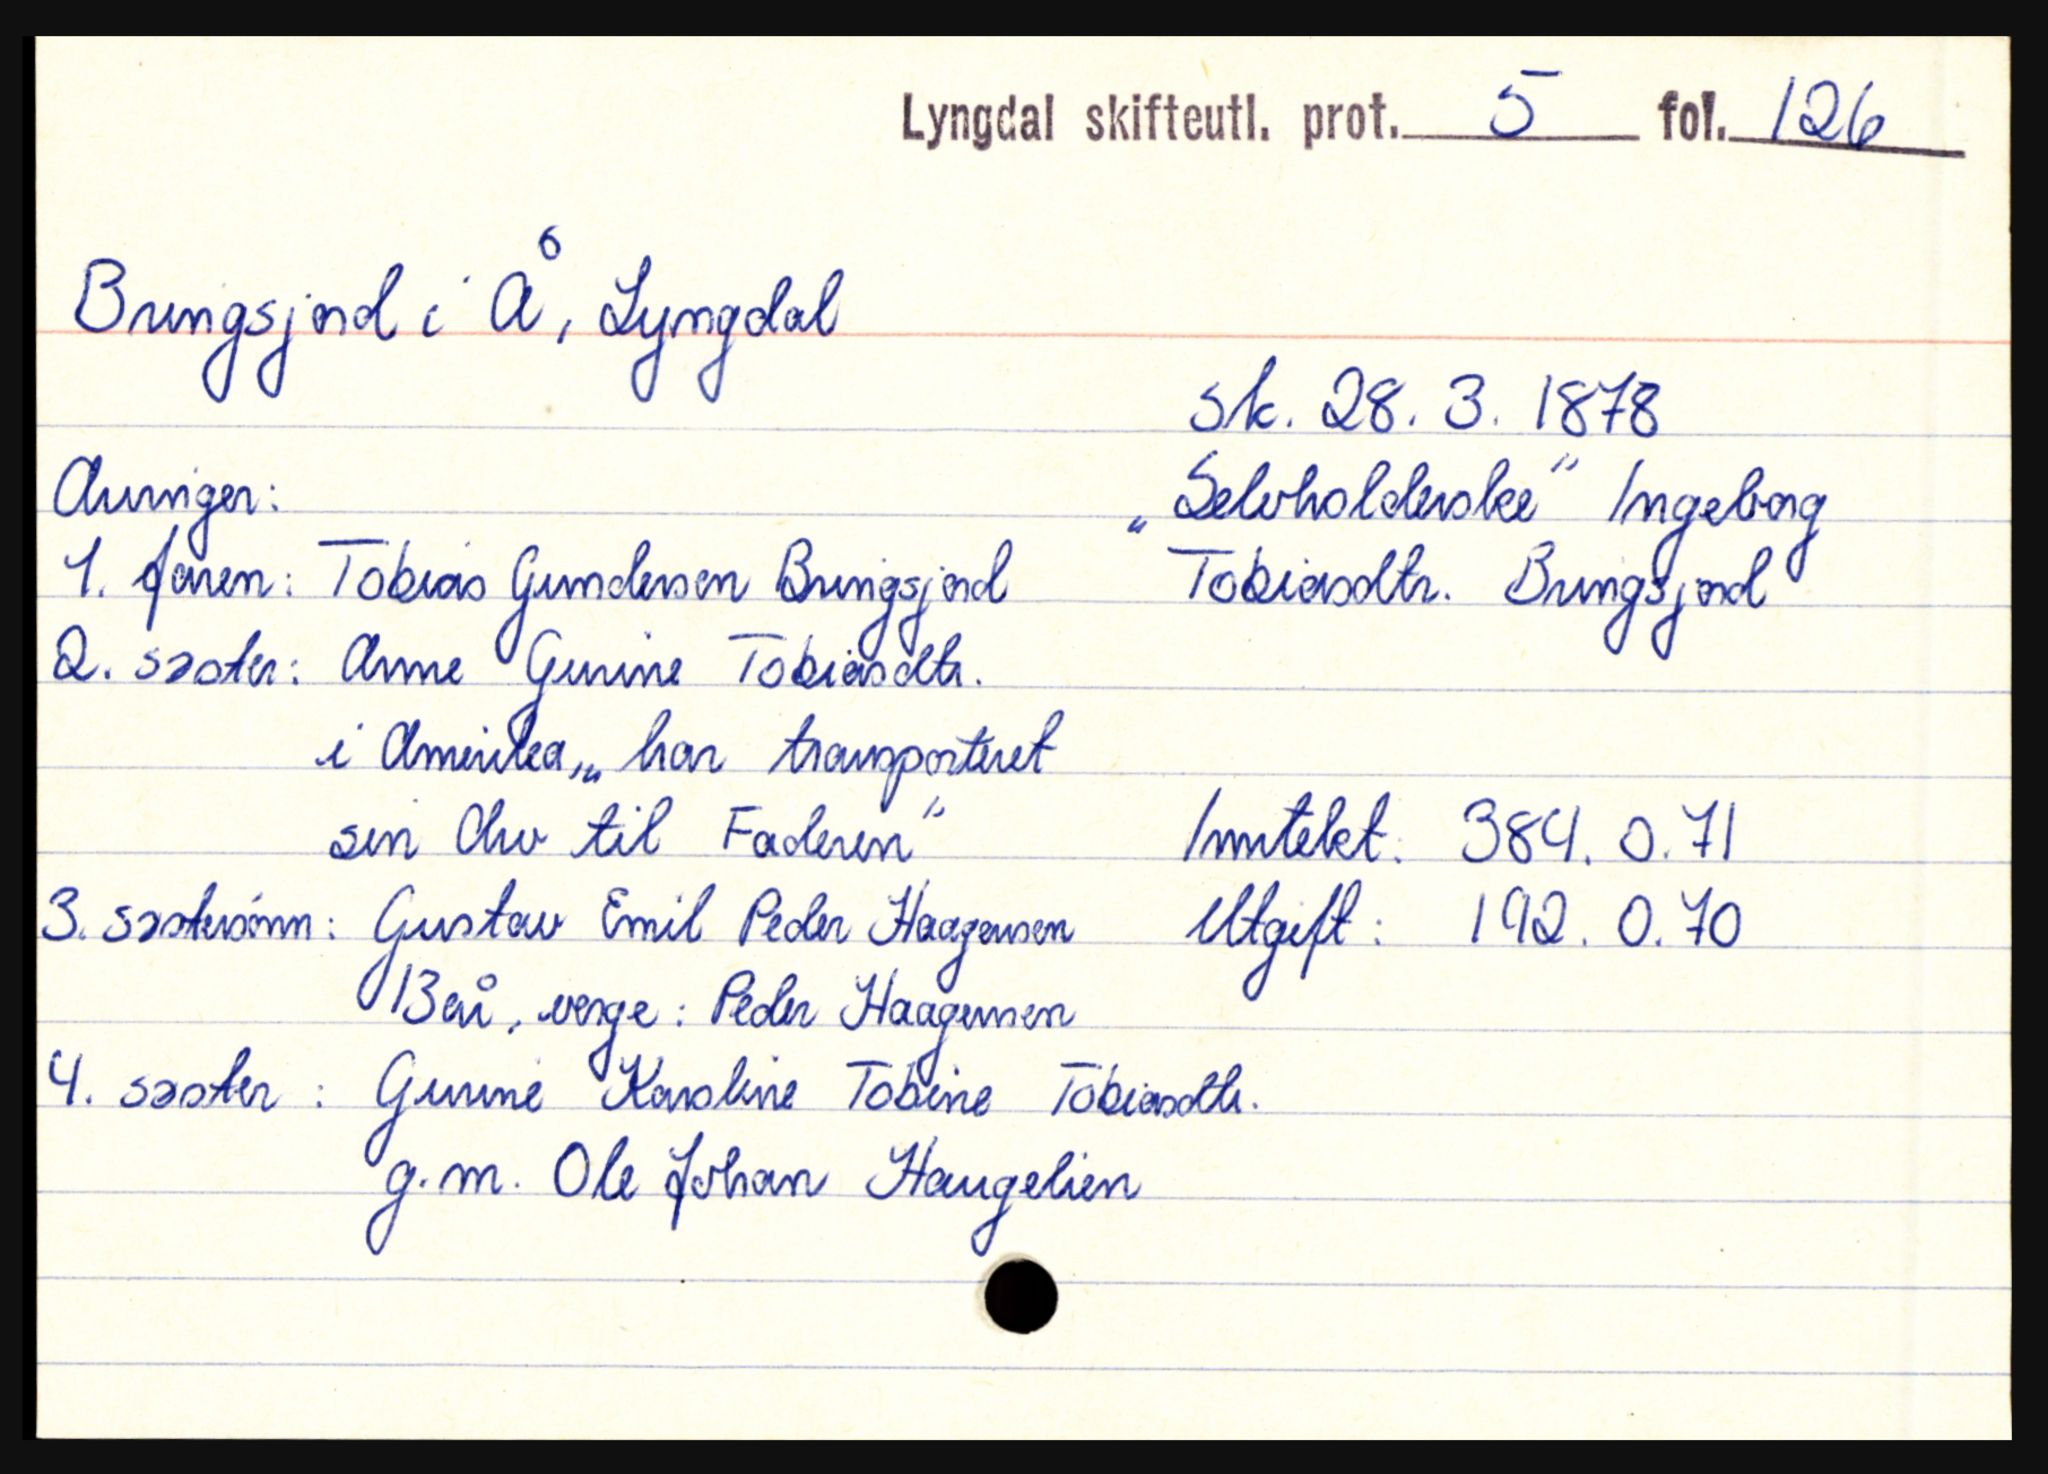 Lyngdal skifteutl. prot. 5 fol. 126
Bringsjord i Å, Lyngdal
sk. 28. 3. 1878
"Selvholderske" Ingeborg
Tobiasdtr. Bringsjord
Arvinger:
1. faren: Tobias Gundersen Bringsjord
2. søster: Anne Gurine Tobiasdtr.
i Amerika, "har transporteret
sin Arv til Faderen"
3. søstersønn: Gustav Emil Peder Haagensen
13 år, verge: Peder Haagensen
4. søster: Gunine Karoline Tobine Tobiasdtr.
g.m. Ole Johan Haugelien
Inntekt: 384. 0. 71
Utgift: 192. 0. 70